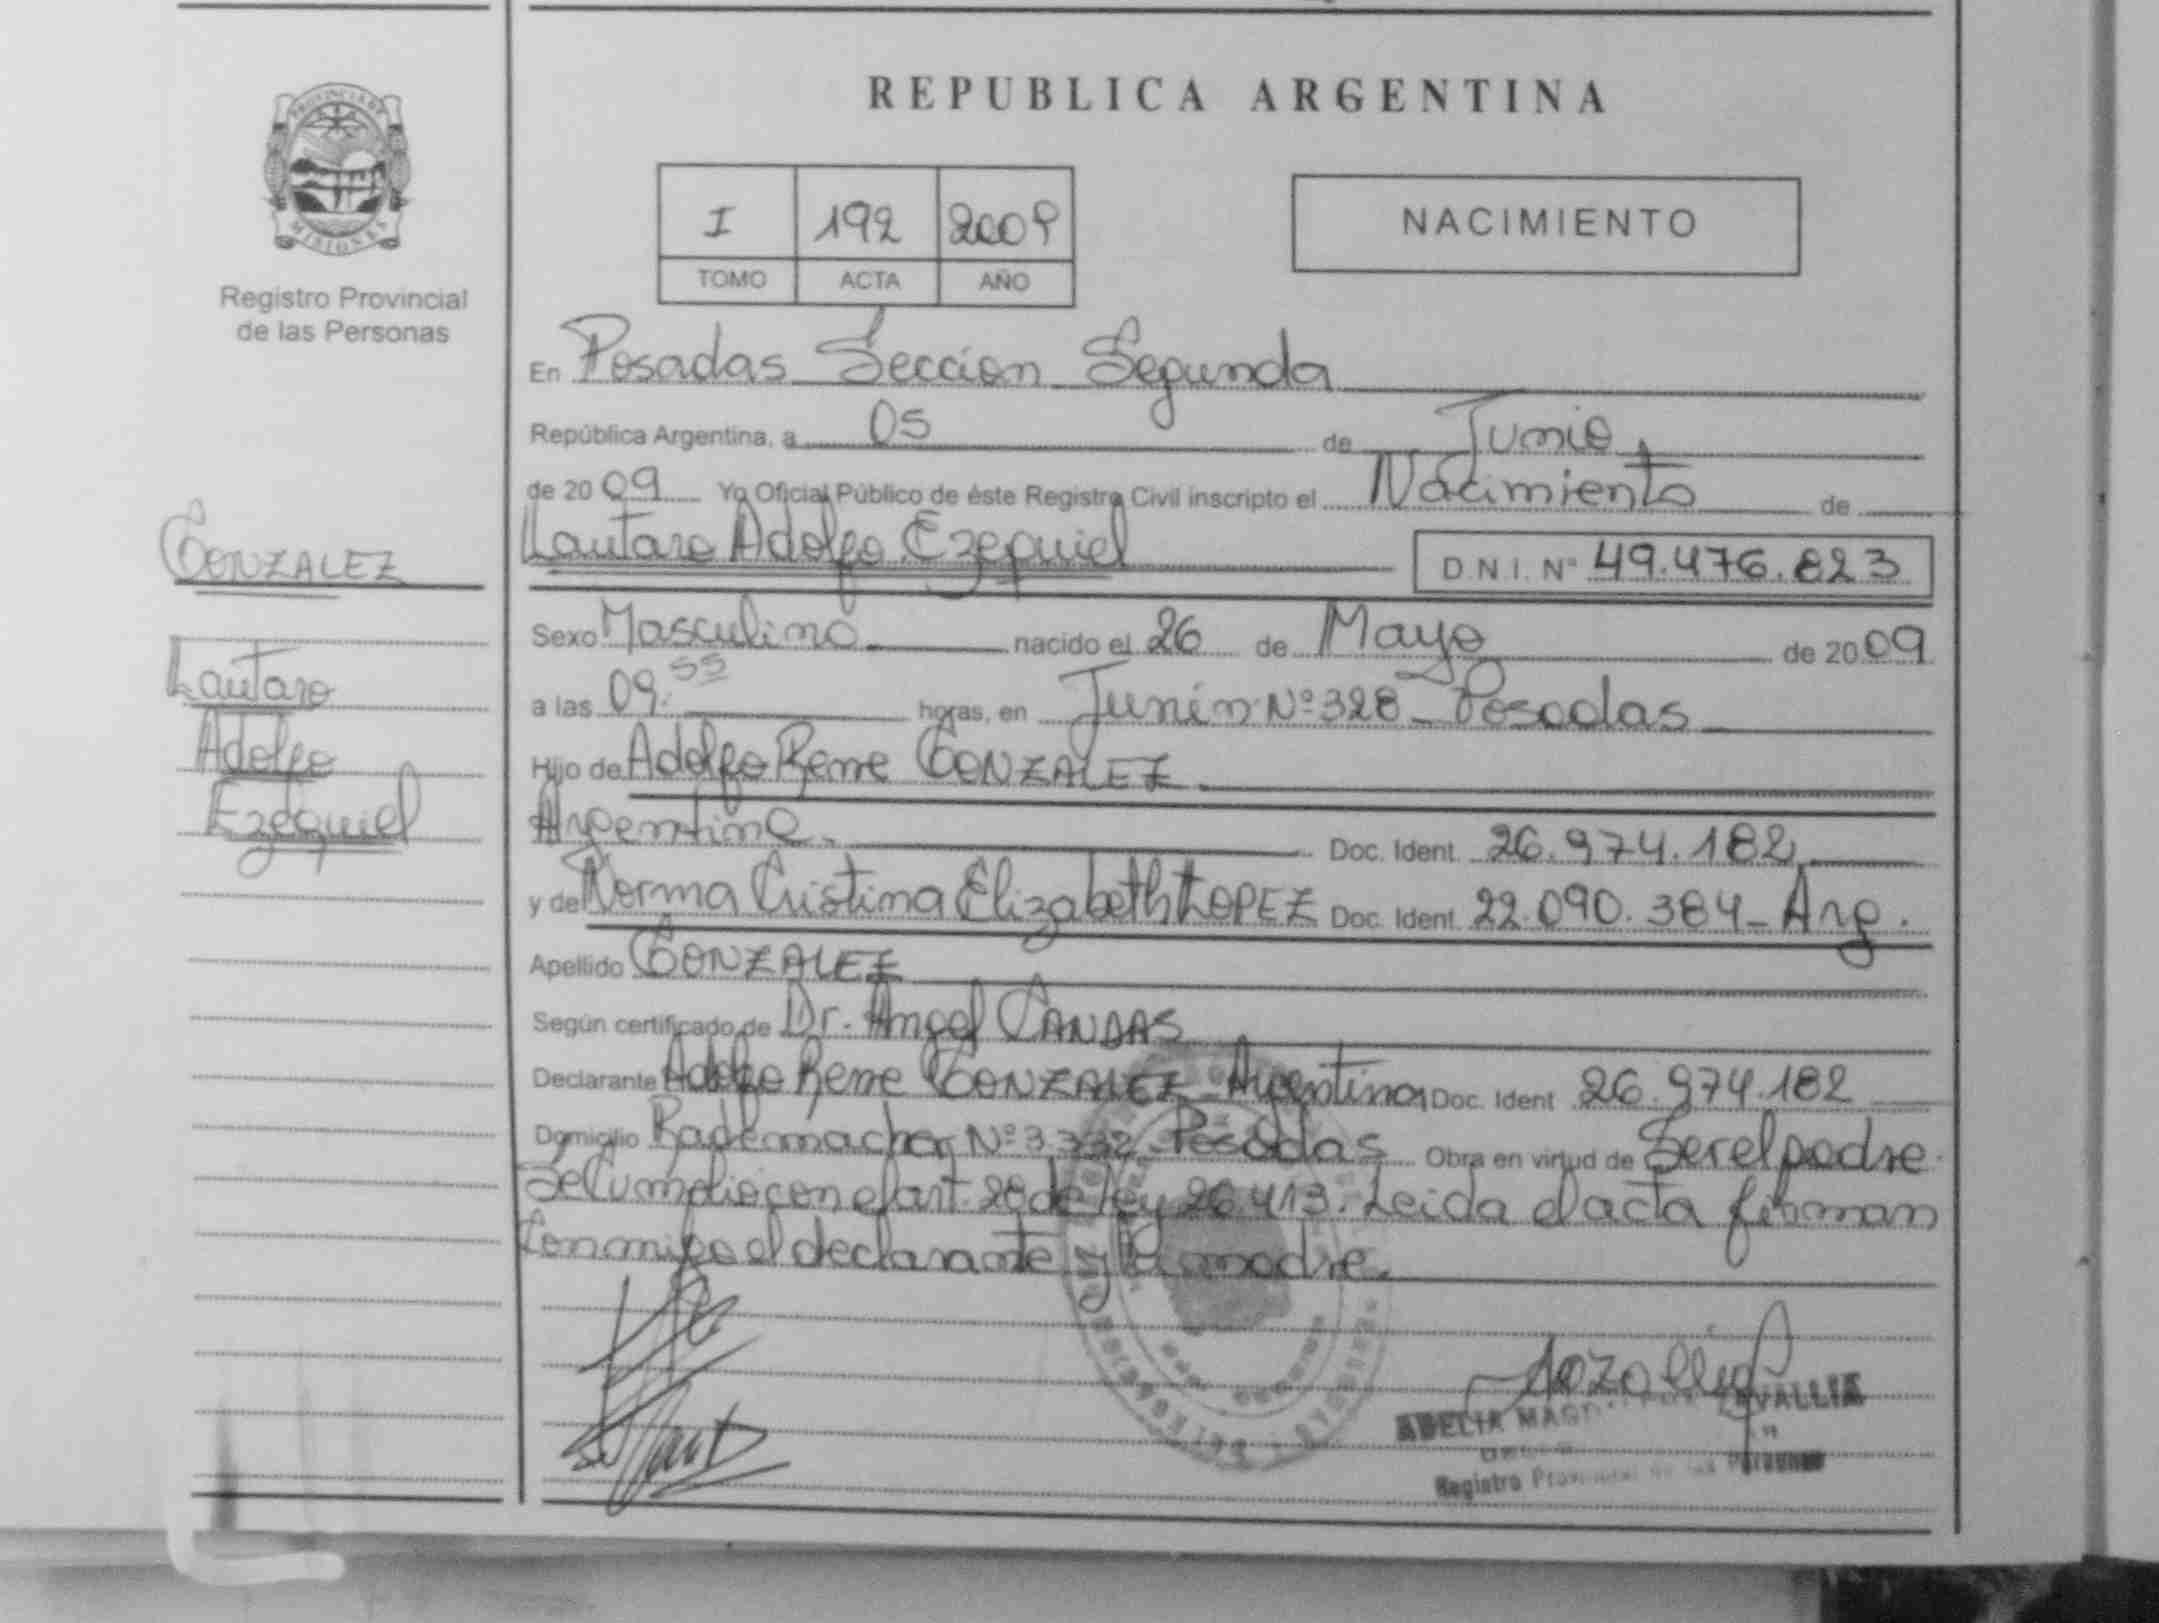 REPUBLICA ARGENTINA
PROVINCIA DE
MISIONES
Registro Provincial
de las Personas
I 192 2009
TOMO ACTA AÑO
NACIMIENTO
En Posadas Seccion Segunda
República Argentina, a 05 de Junio,
de 2009 Yo Oficial Público de éste Registro Civil inscripto el Nacimiento de
Lautaro Adolfo Ezequiel D.N.I. Nº 49.476.823
GONZALEZ
Lautaro
Adolfo
Ezequiel
Sexo Masculino nacido el 26 de Mayo de 2009
a las 09.55 horas, en Junín Nº 328 - Posadas
Hijo de Adolfo Rene GONZALEZ
Argentino. Doc. Ident. 26.974.182
y de Norma Cristina Elizabeth LOPEZ Doc. Ident. 22.090.384 - Arg.
Apellido GONZALEZ
Según certificado de Dr. Angel CANDAS
Declarante Adolfo Rene GONZALEZ - Argentino Doc. Ident 26.974.182
Domicilio Rademacher Nº 3.332 - Posadas Obra en virtud de Ser el padre.
Se Cumplio con el art. 28 de ley 26.413. Leida el acta firman
Conmigo el declarante y la madre.
ADELIA
Registro Provincial de las Personas